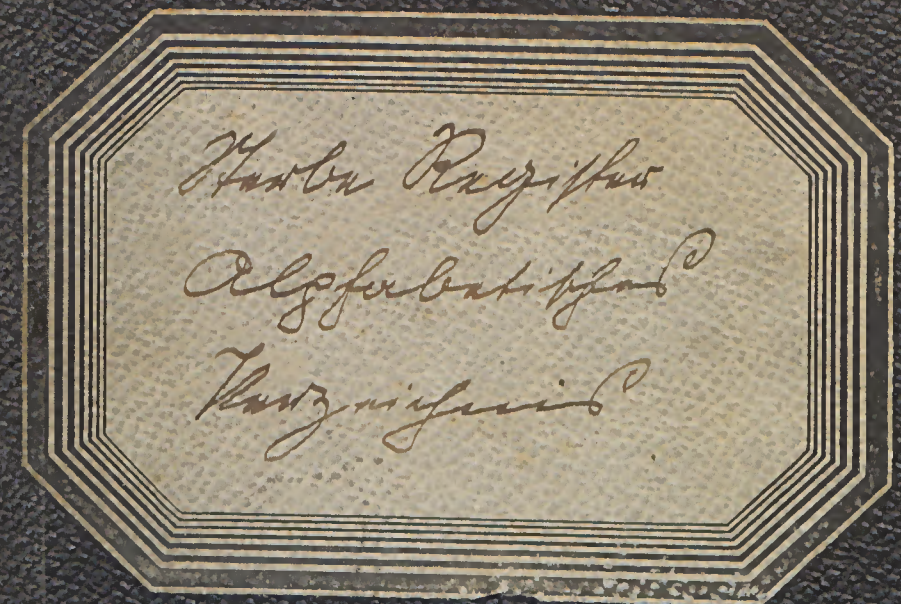 Sterbe Register
Alphabetisches
Verzeichnis